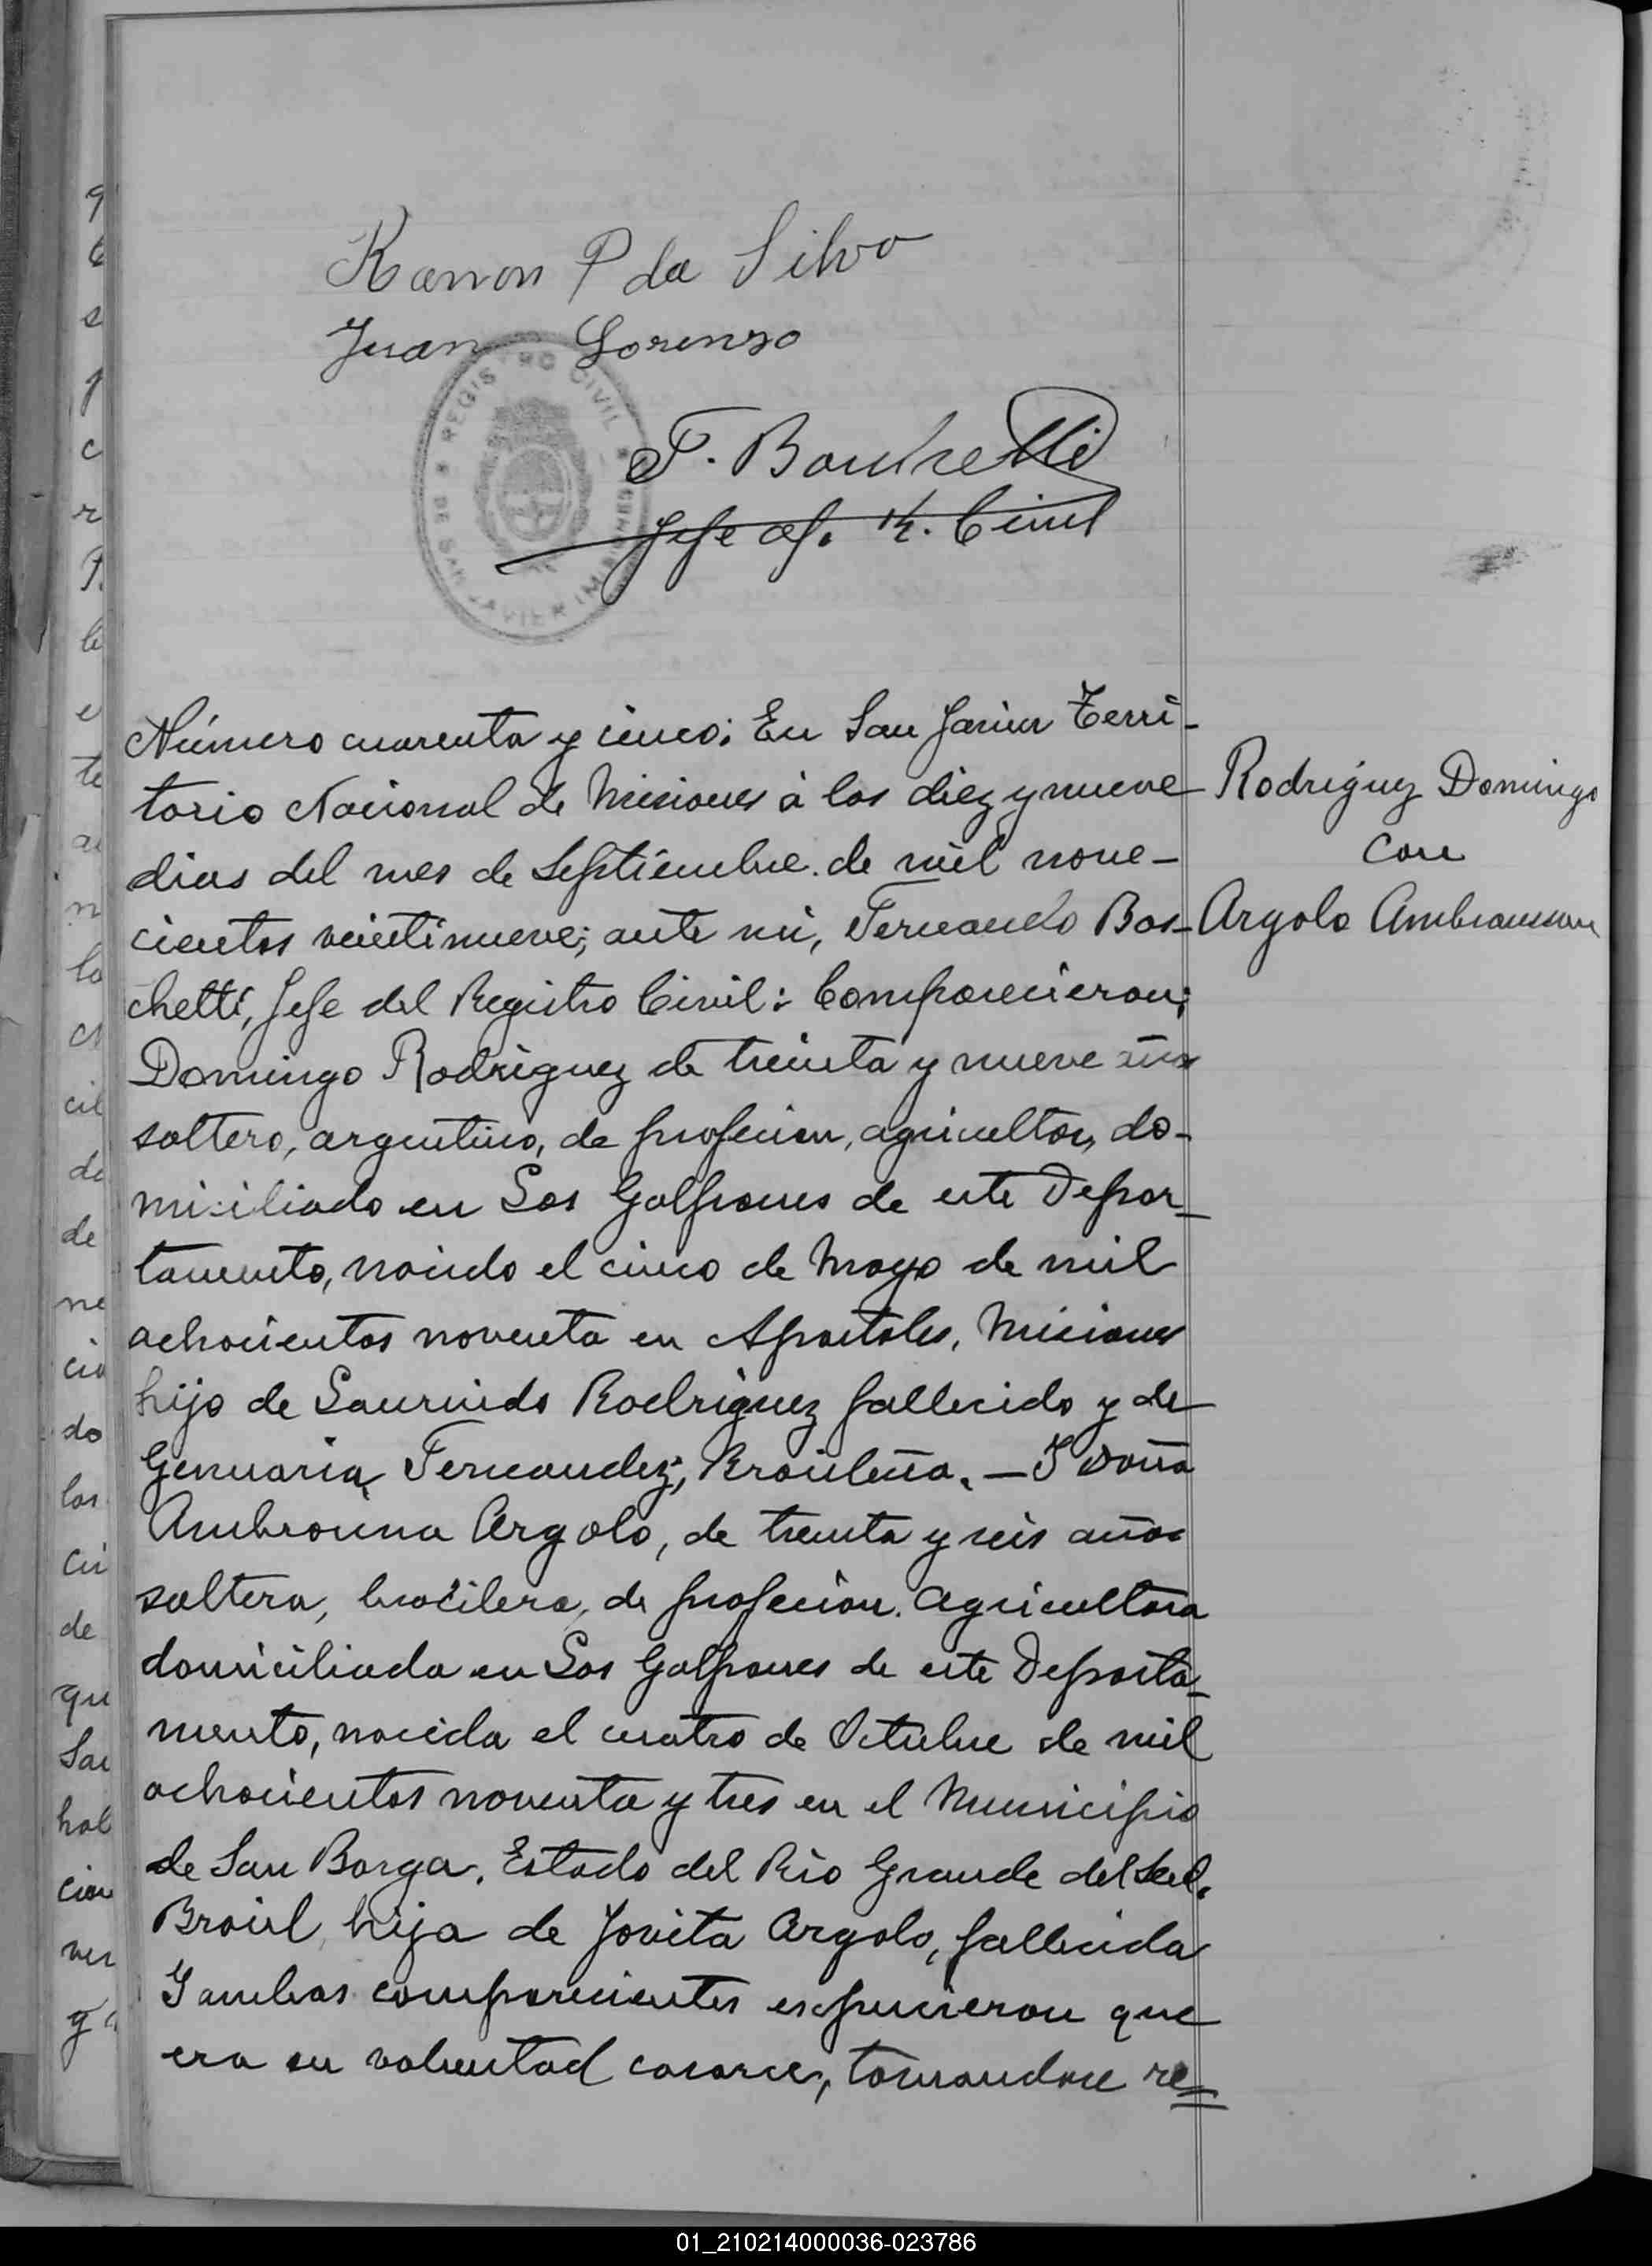 Ramon P da Silva
Juan Lorenzo
REGISTRO CIVIL
DE SAN JAVIER (MISIONES)
F. Boschetti
Jefe of. R. Civil
Número cuarenta y cinco; En San Javier Terri-
torio Nacional de Misiones á los diez y nueve
dias del mes de Septiembre de mil nove-
cientos veintinueve; ante mi, Fernando Bos-
chetti, Jefe del Registro Civil: Comparecieron;
Domingo Rodriguez de treinta y nueve años
soltero, argentino, de profecion, agricultor, do-
miciliado en Los Galpones de este Depar-
tamento, nacido el cinco de Mayo de mil
ochocientos noventa en Apostoles, Misiones
hijo de Laurindo Rodriguez fallecido y de
Genuaria Fernandez, Brasileña. — Y Doña
Ambrocina Argolo, de treinta y seis años
soltera, brasilera, de profecion. Agricultora
domiciliada en Los Galpones de este Departa-
mento, nacida el cuatro de Octubre de mil
ochocientos noventa y tres en el Municipio
de San Borga, Estado del Rio Grande del Sud,
Brasil, hija de Jovita Argolo, fallecida
Y ambos comparecientes expucieron que
era su voluntad casarce, tomandose re=
Rodriguez Domingo
con
Argolo
01_210214000036-023786